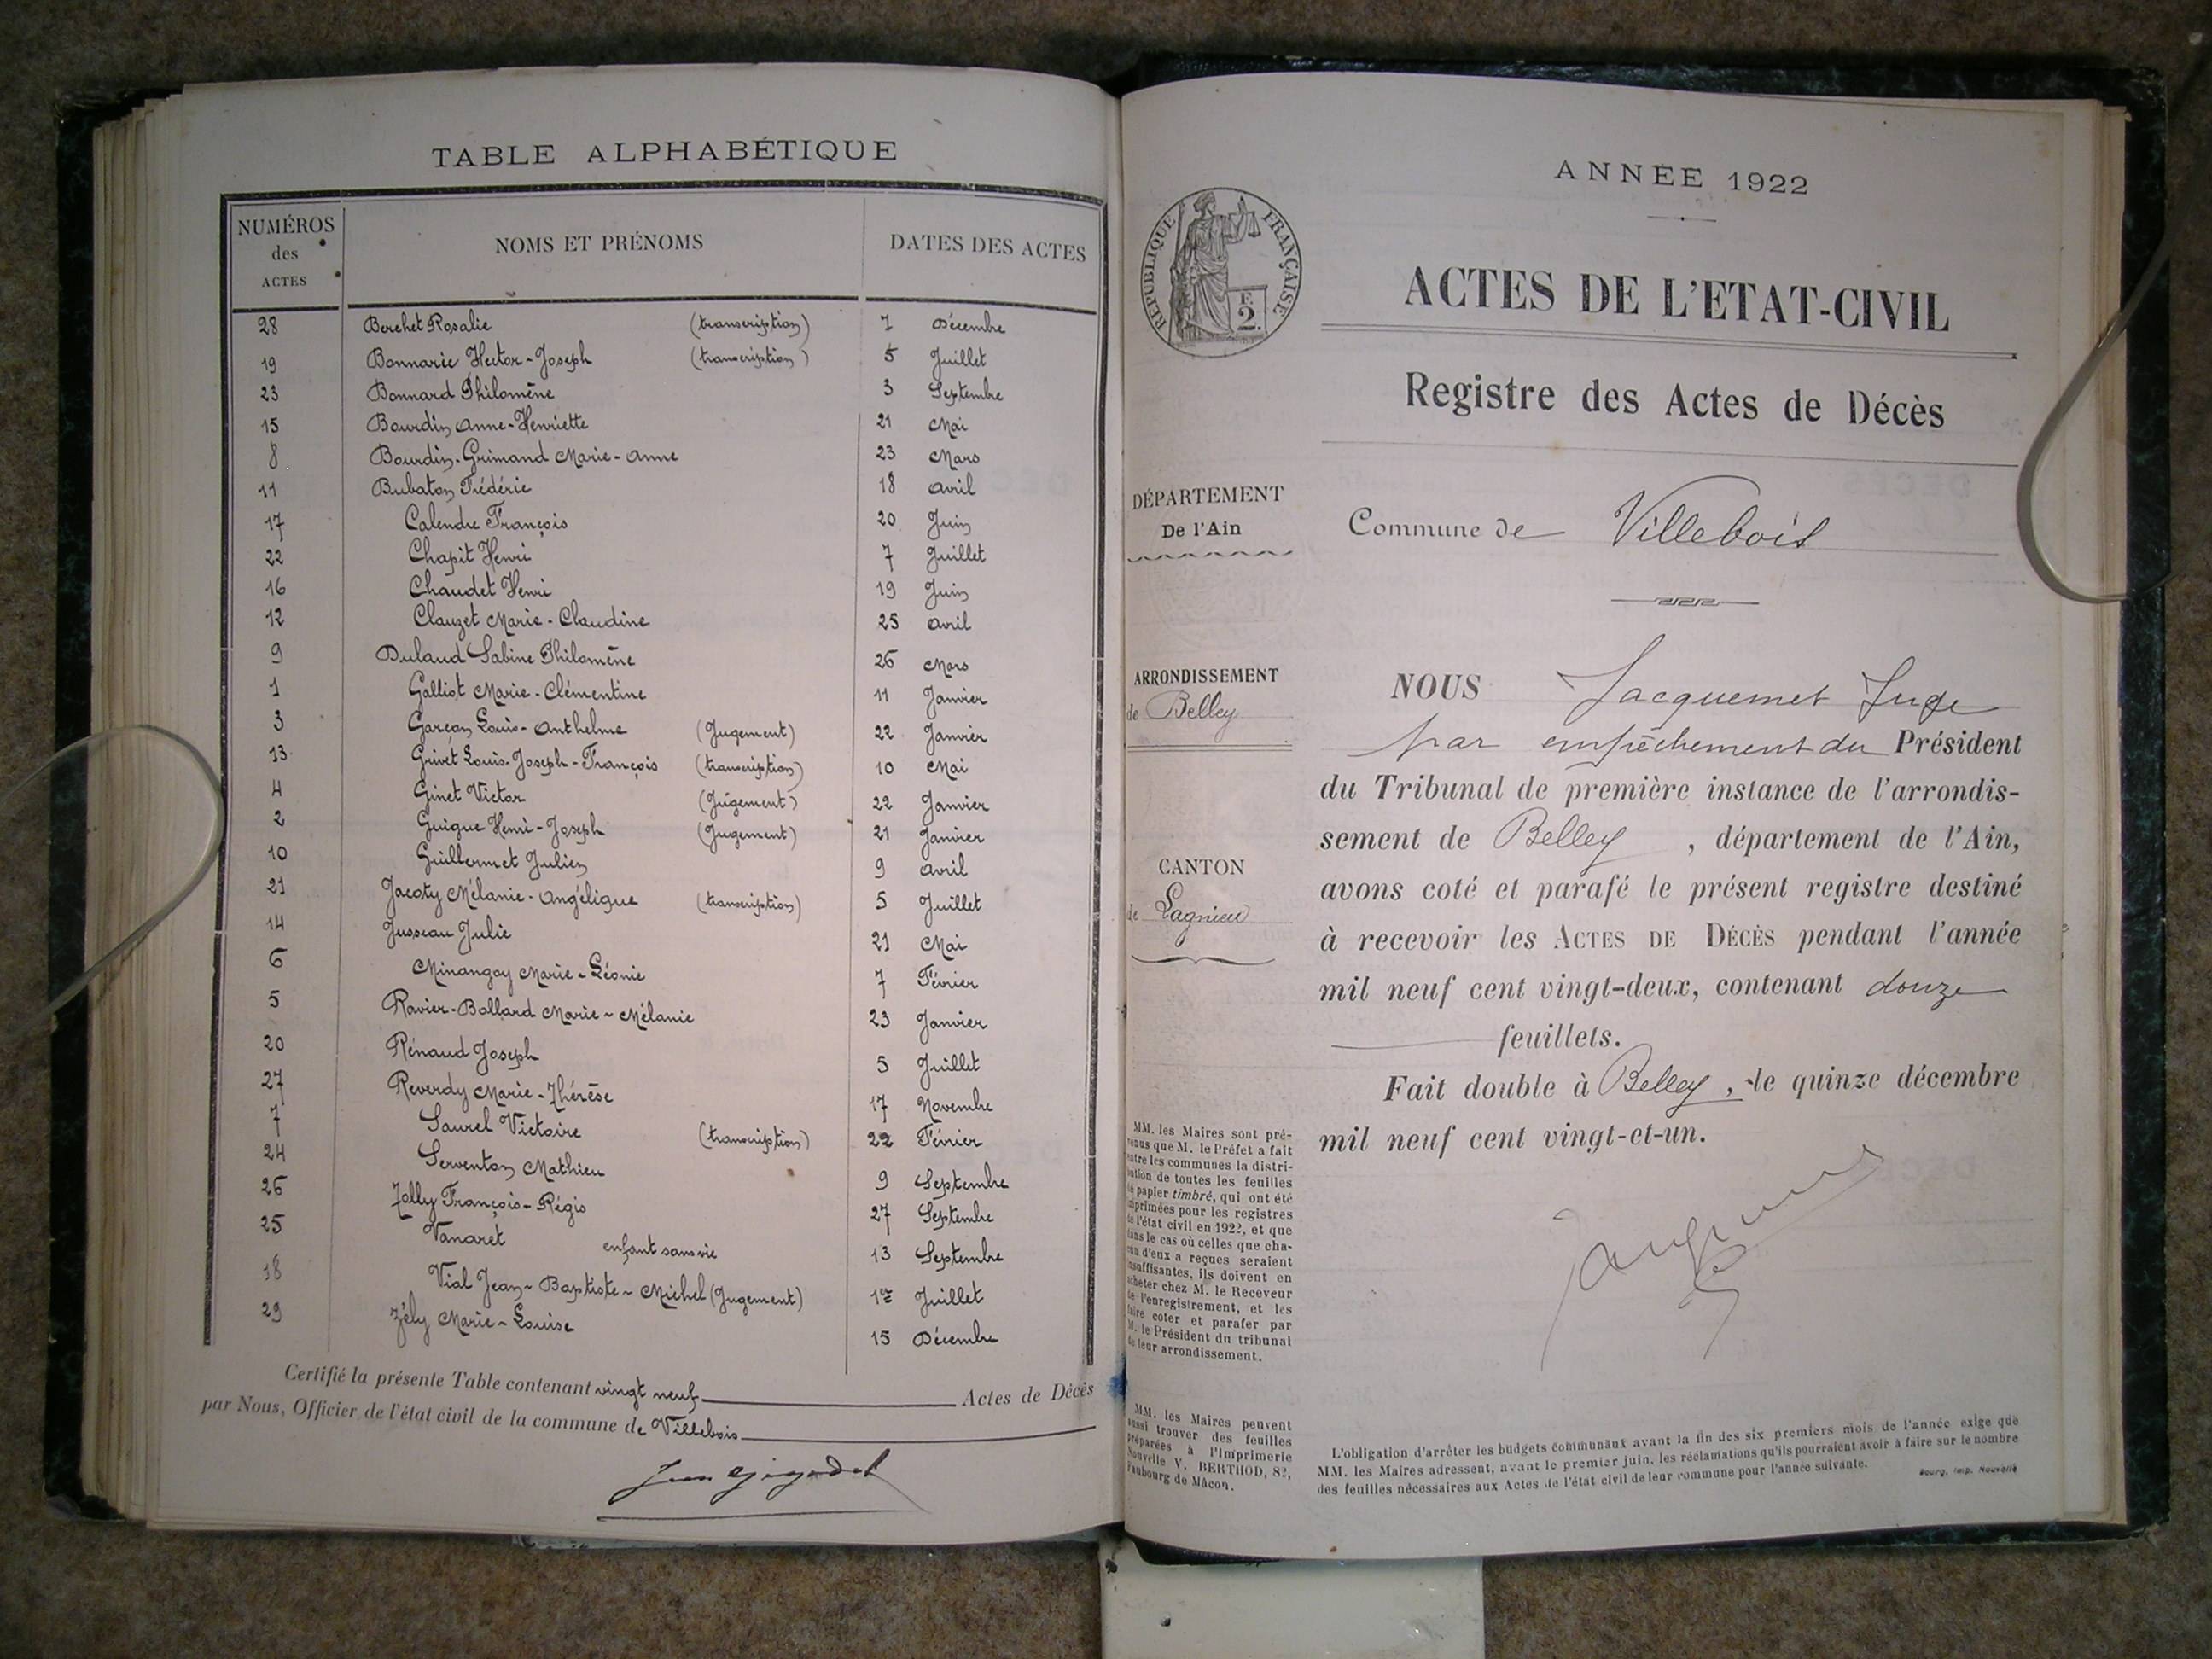 TABLE ALPHABÉTIQUE
NUMÉROS des ACTES NOMS ET PRÉNOMS DATES DES ACTES
28 Berchet Rosalie (transcription) 7 Décembre
19 Bonnarie Hector-Joseph (transcription) 5 Juillet
23 Bonnard Philomène 3 Septembre
15 Bourdin Anne-Henriette 21 Mai
8 Bourdin-Grimand Marie-Anne 23 Mars
11 Bubaton Frédéric 18 Avril
17 Calendre François 20 Juin
22 Chapit Henri 7 Juillet
16 Chaudet Henri 19 Juin
12 Clauzet Marie-Claudine 25 Avril
9 Dulaud Sabine Philomène 26 Mars
1 Galliot Marie-Clémentine 11 Janvier
3 Garçon Louis-Anthelme (Jugement) 22 Janvier
13 Grivet Louis-Joseph-François (transcription) 10 Mai
4 Ginet Victor (Jugement) 22 Janvier
2 Guigue Henri-Joseph (Jugement) 21 Janvier
10 Guillermet Julien 9 Avril
21 Jacoty Mélanie-Angélique (transcription) 5 Juillet
14 Jusseau Julie 21 Mai
6 Minangoy Marie-Léonie 7 Février
5 Ravier-Bollard Marie-Mélanie 23 Janvier
20 Rénaud Joseph 5 Juillet
27 Reverdy Marie-Thérèse 17 Novembre
7 Saurel Victoire (transcription) 22 Février
24 Serventon Mathieu 9 Septembre
26 Tolly François-Régis 27 Septembre
25 Vanaret enfant sans vie 13 Septembre
18 Vial Jean-Baptiste-Michel (Jugement) 1er Juillet
29 Zély Marie-Louise 15 Décembre
Certifié la présente Table contenant vingt neuf Actes de Décès
par Nous, Officier de l'état civil de la commune de Villebois
ANNÉE 1922
RÉPUBLIQUE FRANÇAISE
2
ACTES DE L'ETAT-CIVIL
Registre des Actes de Décès
DÉPARTEMENT
De l'Ain
Commune de Villebois
ARRONDISSEMENT
de Belley
CANTON
de Lagnieu
NOUS Jacquemet Juge
par empêchement du Président
du Tribunal de première instance de l'arrondis-
sement de Belley , département de l'Ain,
avons coté et parafé le présent registre destiné
à recevoir les ACTES DE DÉCÈS pendant l'année
mil neuf cent vingt-deux, contenant douze
feuillets.
Fait double à Belley, le quinze décembre
mil neuf cent vingt-et-un.
MM. les Maires sont pré-
venus que M. le Préfet a fait
entre les communes la distri-
bution de toutes les feuilles
de papier timbré, qui ont été
imprimées pour les registres
de l'état civil en 1922, et que
dans le cas où celles que cha-
cun d'eux a reçues seraient
insuffisantes, ils doivent en
acheter chez M. le Receveur
de l'enregistrement, et les
faire coter et parafer par
M. le Président du tribunal
de leur arrondissement.
MM. les Maires peuvent
aussi trouver des feuilles
préparées à l'Imprimerie
Nouvelle V. BERTHOD, 82,
Faubourg de Mâcon.
L'obligation d'arrêter les budgets communaux avant la fin des six premiers mois de l'année exige que
MM. les Maires adressent, avant le premier juin, les réclamations qu'ils pourraient avoir à faire sur le nombre
des feuilles nécessaires aux Actes de l'état civil de leur commune pour l'année suivante.
Bourg, Imp. Nouvelle